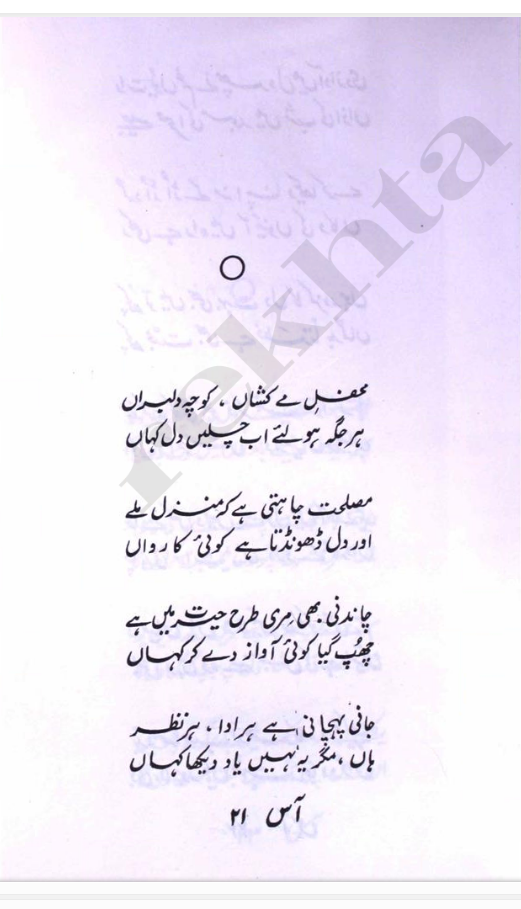 محفلِ مے کشاں ، کوچہ دلبراں
ہر جگہ ہو لئے اب چلیں دل کہاں
مصلحت چاہتی ہے کہ منزل ملے
اور دل ڈھونڈتا ہے کوئی کارواں
چاندنی بھی مری طرح حیرت میں ہے
چھُپ گیا کوئی آواز دے کر کہاں
جانی پہچانی ہے ہر ادا ، ہر نظر
ہاں ، مگر یہ نہیں یاد دیکھا کہاں
آس ۲۱
rekhta